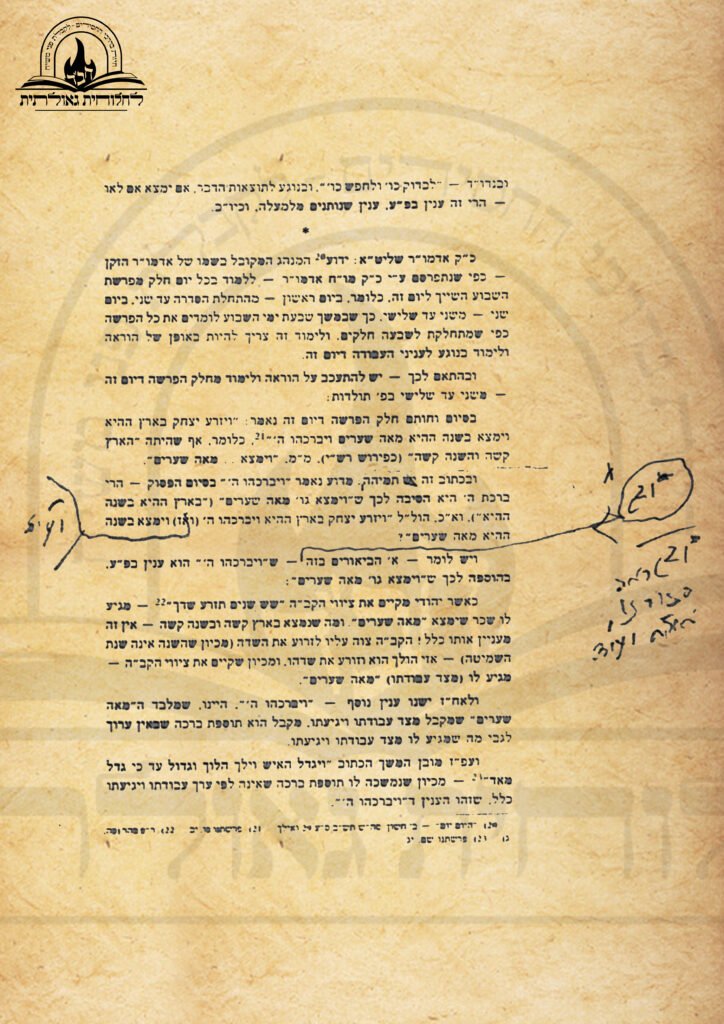 להחזרית גאולתית
ובנדו״ד — ״לבדוק כו׳ ולחפש כו׳״, ובנוגע לתוצאות הדבר, אם ימצא אם לאו
— הרי זה ענין בפ״ע, ענין שנותנים מלמעלה, וכיו״ב.
*
כ״ק אדמו״ר שליט״א: ידוע20 המנהג המקובל בשמו של אדמו״ר הזקן
— כפי שנתפרסם ע״י כ״ק מו״ח אדמו״ר — ללמוד בכל יום חלק מפרשת
השבוע השייך ליום זה, כלומר, ביום ראשון — מהתחלת הסדרה עד שני, ביום
שני — משני עד שלישי, כך שבמשך שבעת ימי השבוע לומדים את כל הפרשה
כפי שמתחלקת לשבעה חלקים, ולימוד זה צריך להיות באופן של הוראה
ולימוד בנוגע לעניני העבודה דיום זה.
ובהתאם לכך — יש להתעכב על הוראה ולימוד מחלק הפרשה דיום זה
— משני עד שלישי בפ׳ תולדות:
בסיום וחותם חלק הפרשה דיום זה נאמר: ״ויזרע יצחק בארץ ההיא
וימצא בשנה ההיא מאה שערים ויברכהו ה׳״21, כלומר, אף שהיתה ״הארץ
קשה והשנה קשה״ (כפירוש רש״י), מ״מ, ״וימצא . . מאה שערים״.
ובכתוב זה תמיהה, מדוע נאמר ״ויברכהו ה׳״ בסיום הפסוק — הרי
ברכת ה׳ היא הסיבה לכך ש״וימצא גו׳ מאה שערים״ (״בארץ ההיא בשנה
ההיא״), וא״כ, הול״ל ״ויזרע יצחק בארץ ההיא ויברכהו ה׳ (ואז) וימצא בשנה
ההיא מאה שערים״?
ויש לומר — א׳ הביאורים בזה — ש״ויברכהו ה׳״ הוא ענין בפ״ע,
בהוספה לכך ש״וימצא גו׳ מאה שערים״:
כאשר יהודי מקיים את ציווי הקב״ה ״שש שנים תזרע שדך״22 — מגיע
לו שכר שימצא ״מאה שערים״. ומה שנמצא בארץ קשה ובשנה קשה — אין זה
מעניין אותו כלל! הקב״ה צוה עליו לזרוע את השדה (מכיון שהשנה אינה שנת
השמיטה) — אזי הולך הוא וזורע את שדהו, ומכיון שקיים את ציווי הקב״ה —
מגיע לו (מצד עבודתו) ״מאה שערים״.
ולאח״ז ישנו ענין נוסף — ״ויברכהו ה׳״, היינו, שמלבד ה״מאה
שערים״ שמקבל מצד עבודתו ויגיעתו, מקבל הוא תוספת ברכה שבאין ערוך
לגבי מה שמגיע לו מצד עבודתו ויגיעתו.
ועפ״ז מובן המשך הכתוב ״ויגדל האיש וילך הלוך וגדול עד כי גדל
מאד״23 — מכיון שנמשכה לו תוספת ברכה שאינה לפי ערך עבודתו ויגיעתו
כלל, שזהו הענין ד״ויברכהו ה׳״.
20) ״היום יום״ — 21) פרשתנו כו, יב 22)
23) פרשתנו שם, יג